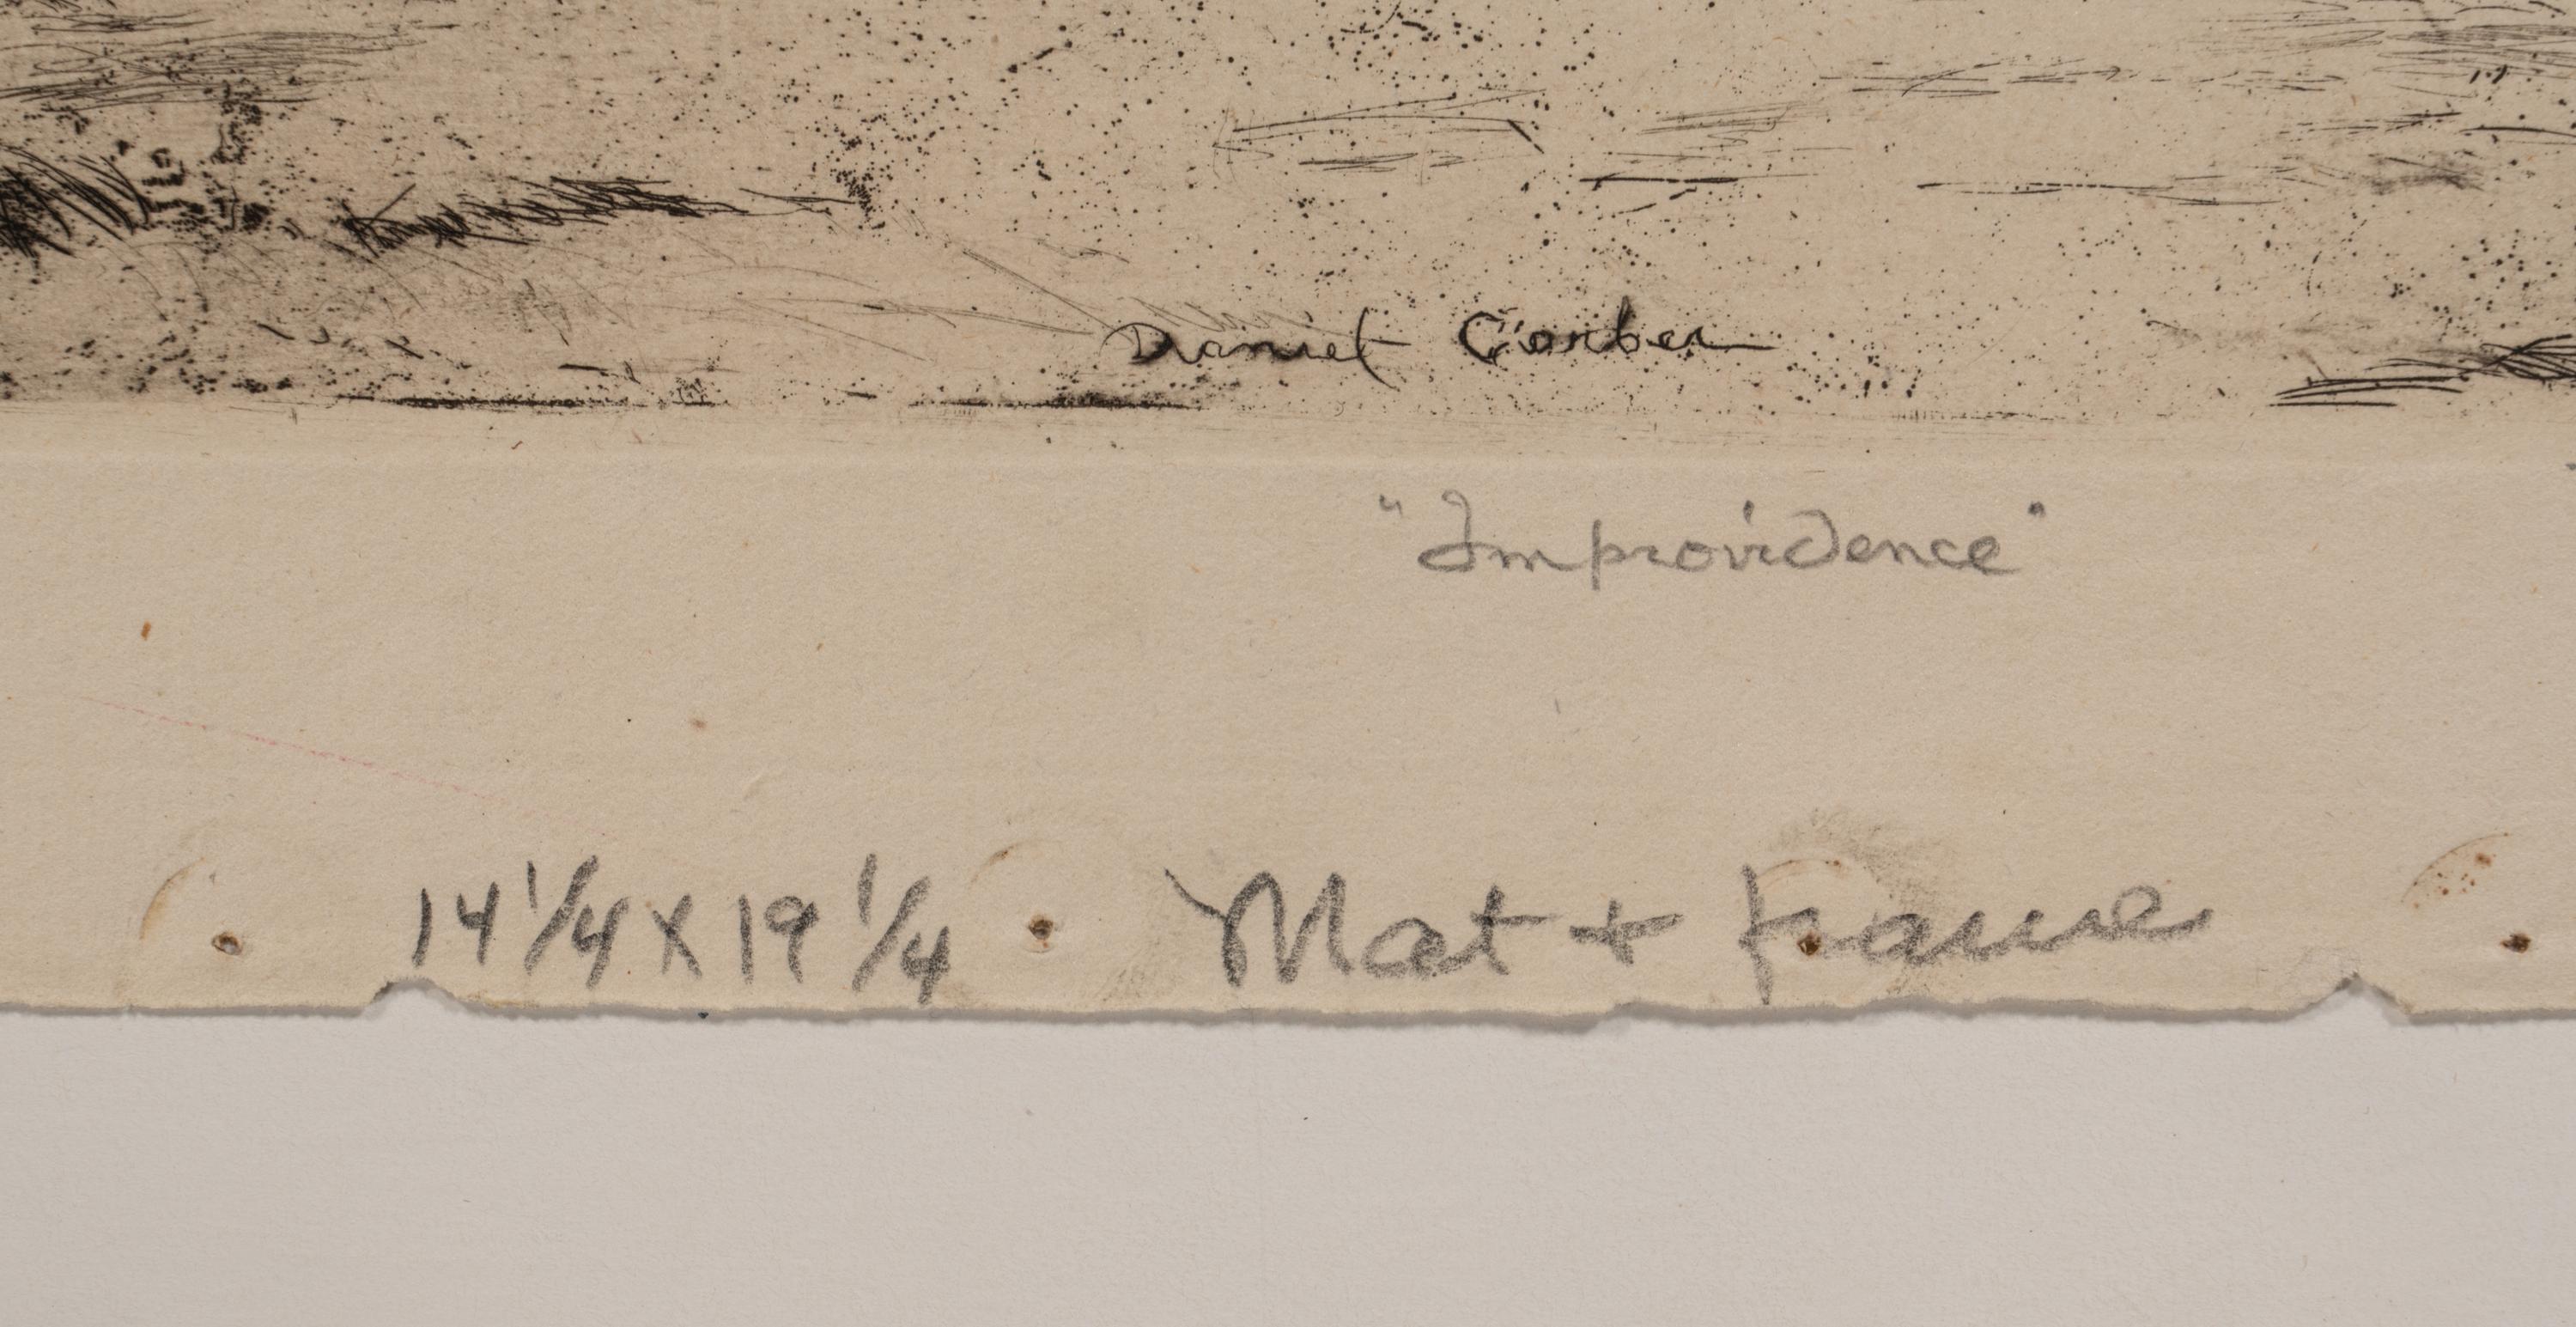 Daniel Garber
"Improvidence"
14 1/4 x 19 1/4 Mat + frame